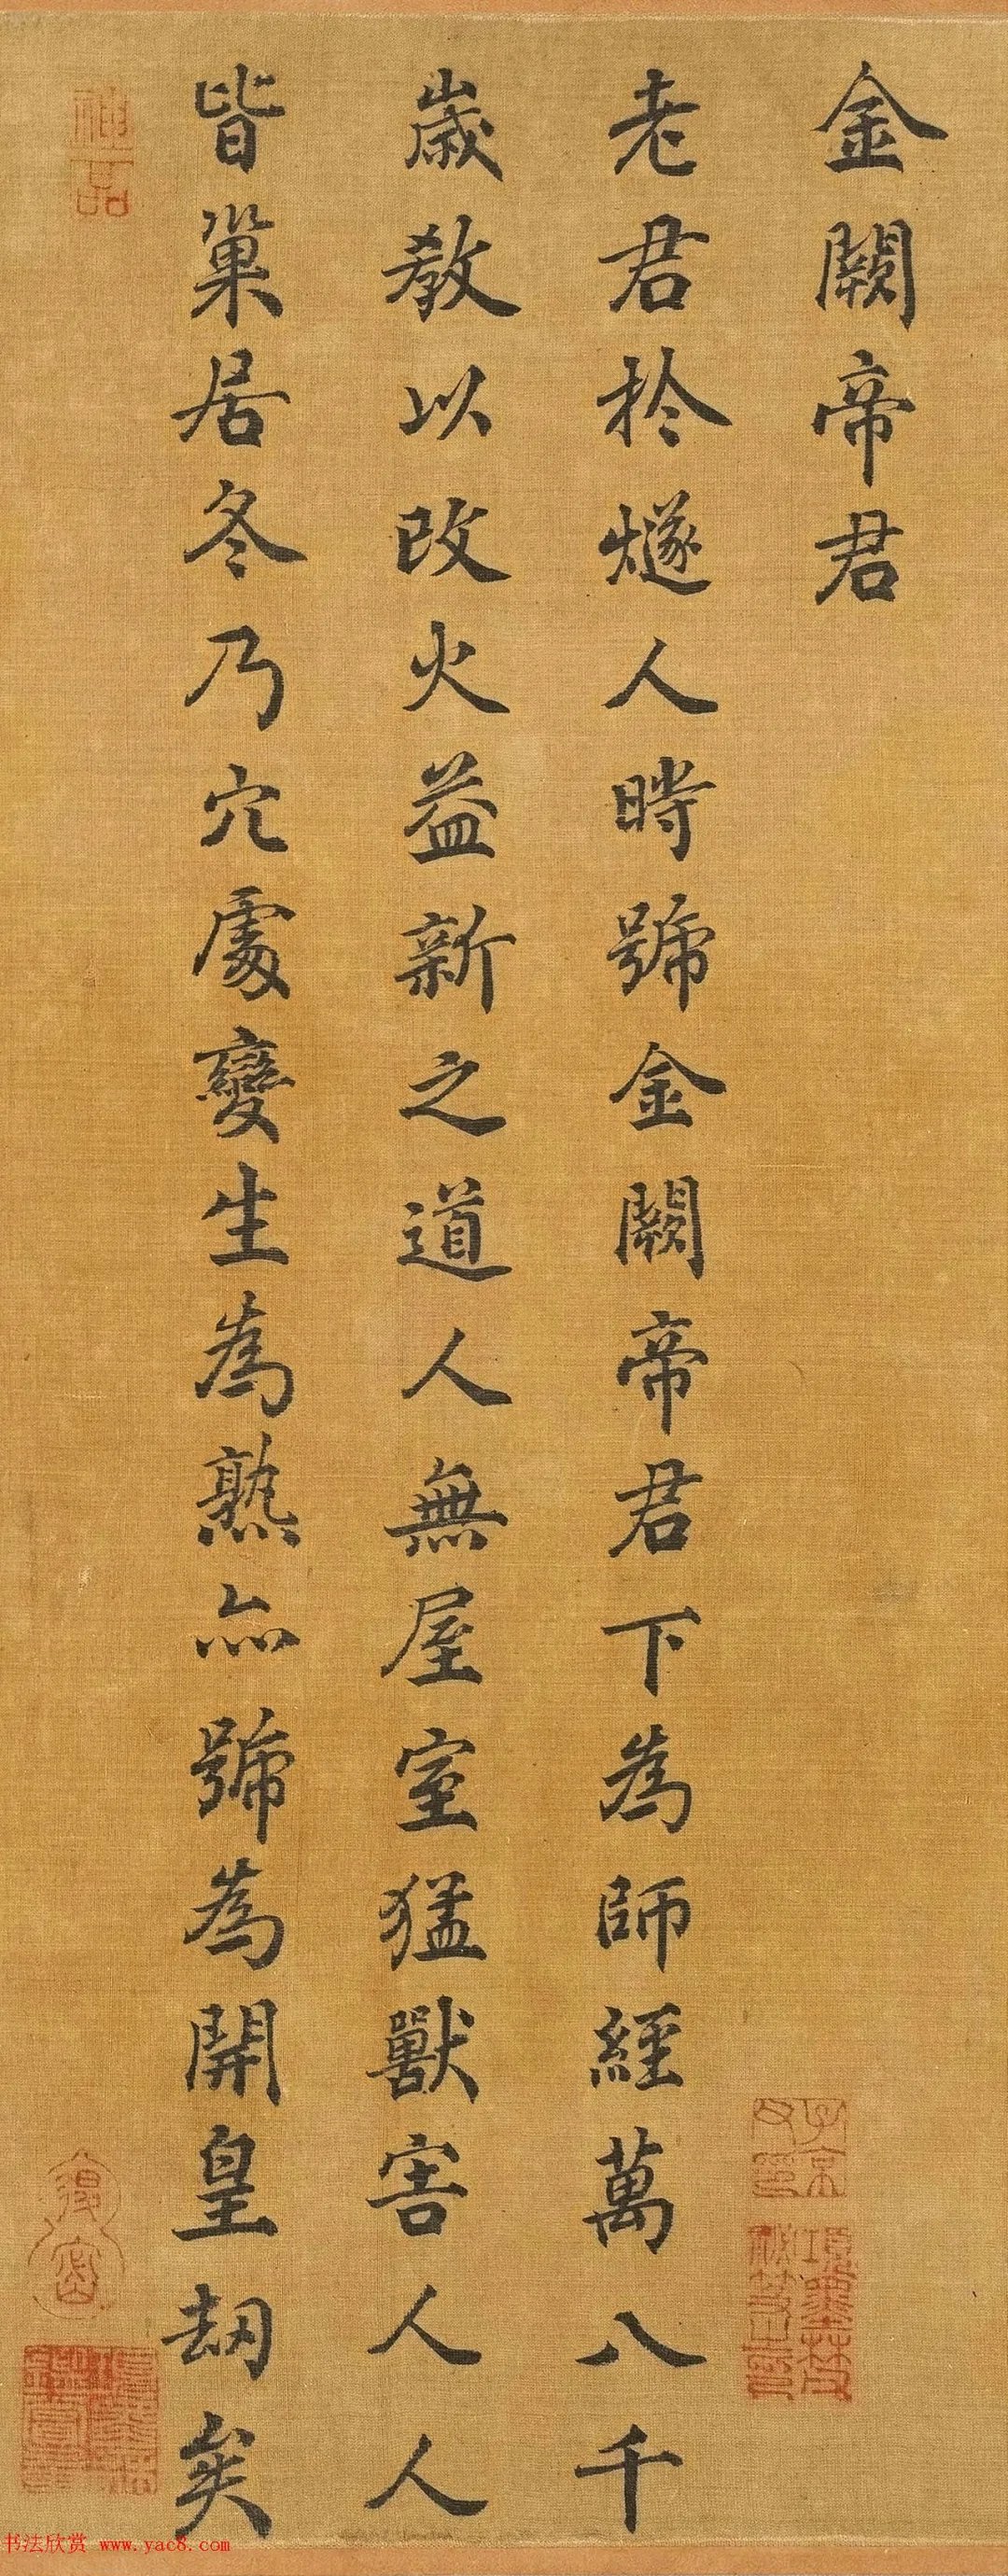 金闕帝君
老君於燧人時號金闕帝君下為師經萬八千
歲教以改火益新之道人無屋室猛獸害人人
皆巢居冬乃穴處變生為熟亦號為開皇劫矣
神品
子京父印
項墨林父祕笈之印
書法欣赏 www.yac8.com